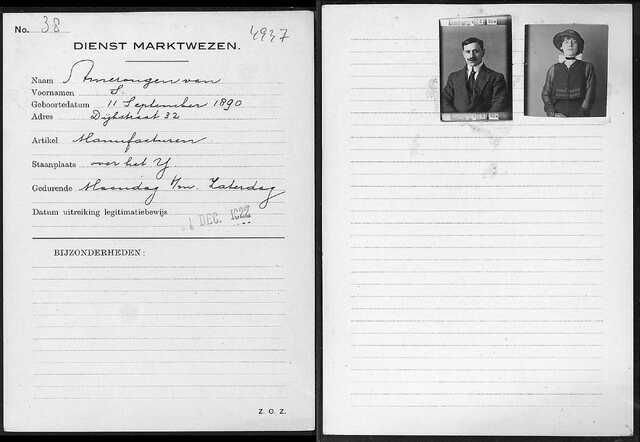 No. 38
4937
DIENST MARKTWEZEN.
Naam Amerongen van
Voornamen S.
Geboortedatum 11 September 1890
Adres Dijkstraat 32
Artikel Manufacturen
Staanplaats over het Y
Gedurende Maandag t/m Zaterdag
Datum uitreiking legitimatiebewijs 1 DEC. 1922
BIJZONDERHEDEN:
Z. O. Z.